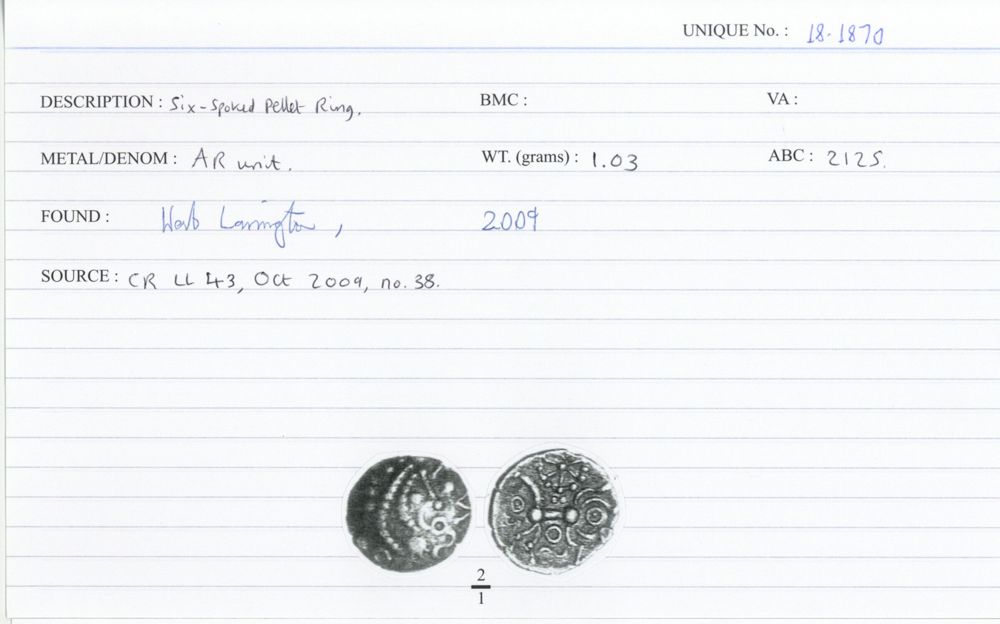 UNIQUE No. : 18-1870
DESCRIPTION : Six-Spoked Pellet Ring. BMC : VA :
METAL/DENOM : AR unit. WT. (grams) : 1.03 ABC : 2125.
FOUND : , 2009
SOURCE : CR LL 43, Oct 2009, no. 38.
2
1